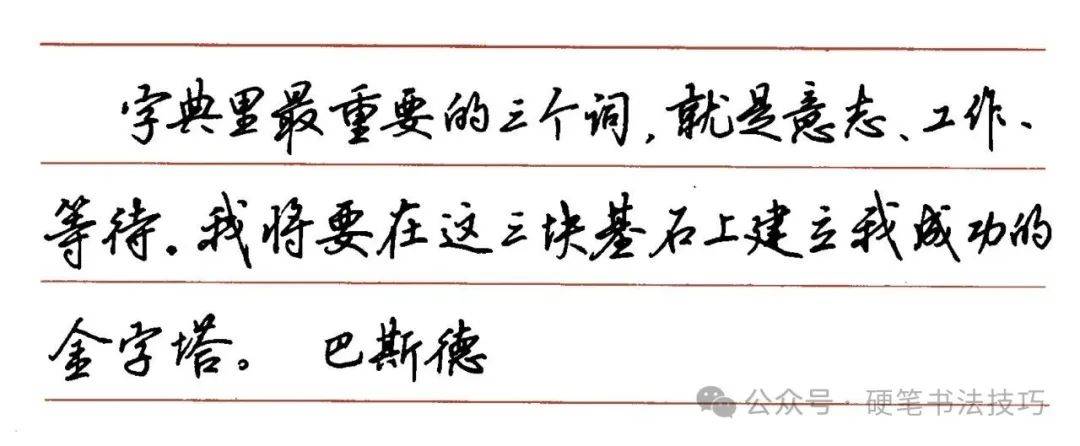 字典里最重要的三个词,就是意志、工作、
等待。我将要在这三块基石上建立我成功的
金字塔。 巴斯德
公众号·硬笔书法技巧